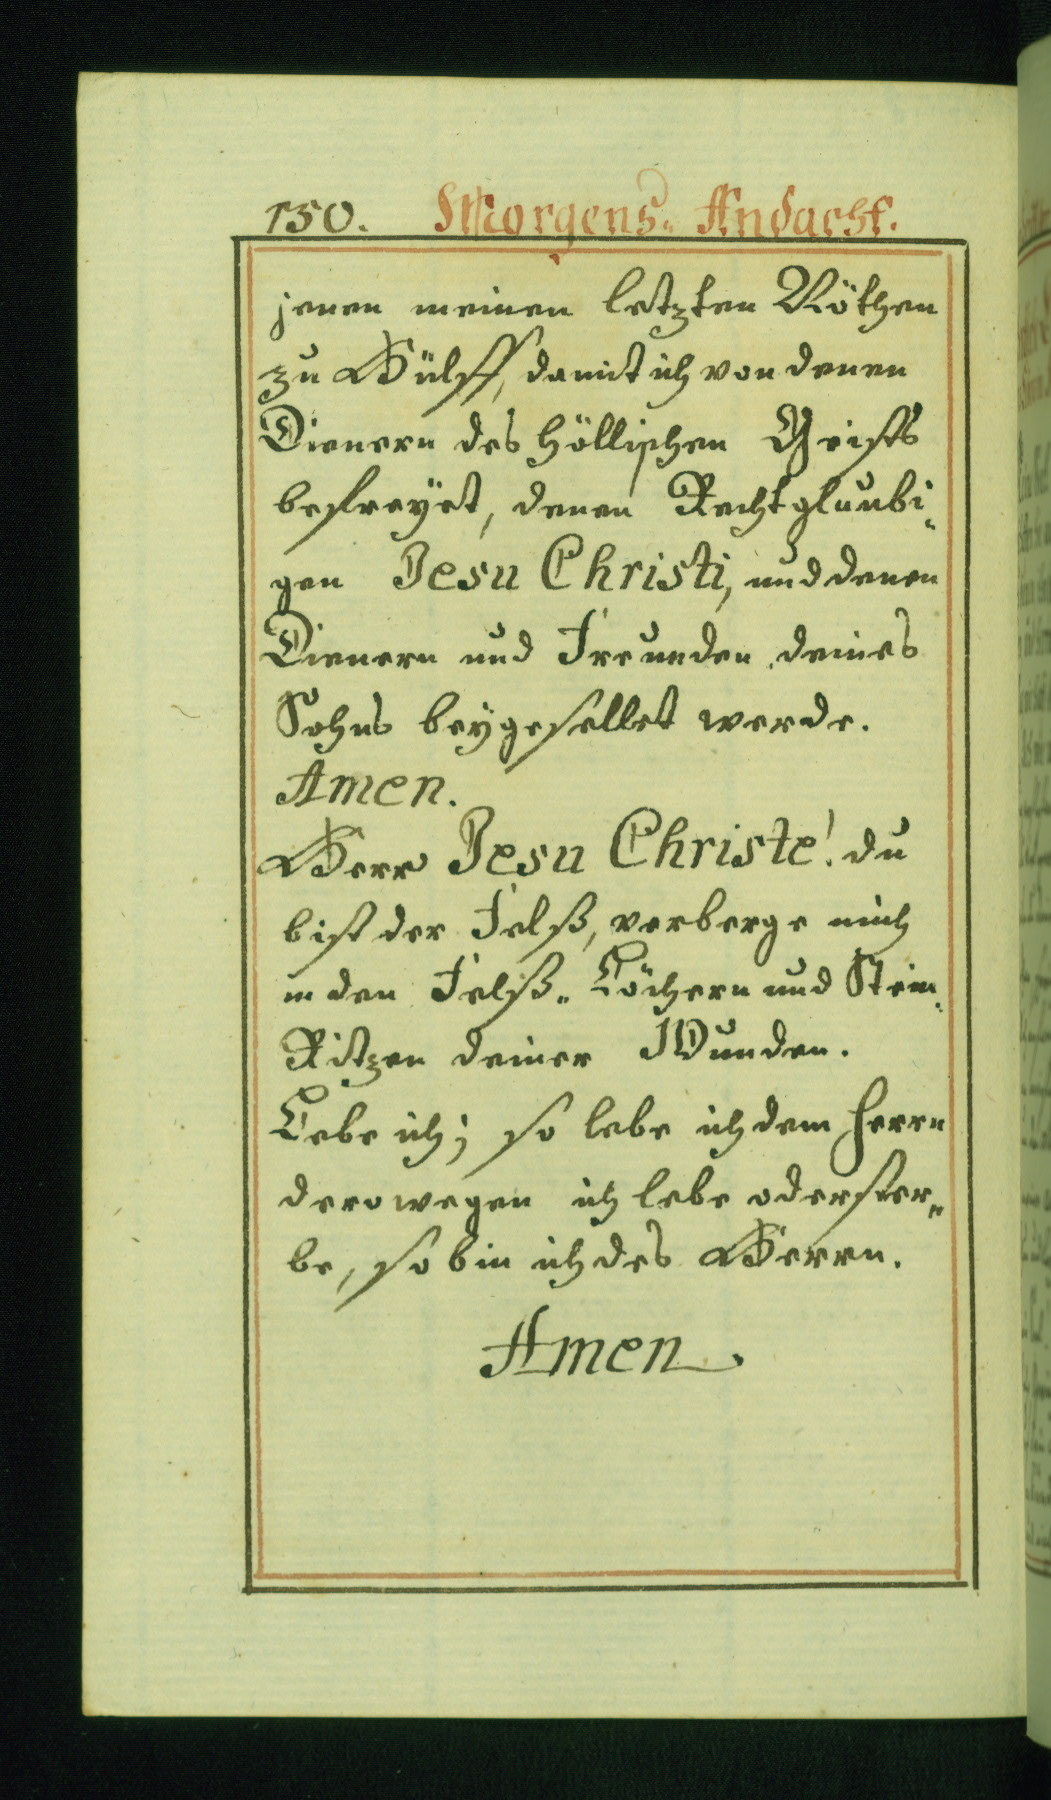 150. Morgens= Andacht.
jenen meinen letzten Nöthen
zu Hülff, damit ich von denen
Dienern des höllischen Geists
befreyet, denen Rechtglaubi=
gen Jesu Christi, und denen
Dienern und Freunden deines
Sohns beygesellet werde.
Amen.
Herr Jesu Christe! du
bist der Felß, verberge mich
in den Felß= Löchern und Stein=
Ritzen deiner Wunden.
Lebe ich; so lebe ich dem Herrn
derowegen ich lebe oder ster=
be, so bin ich des Herrn.
Amen.